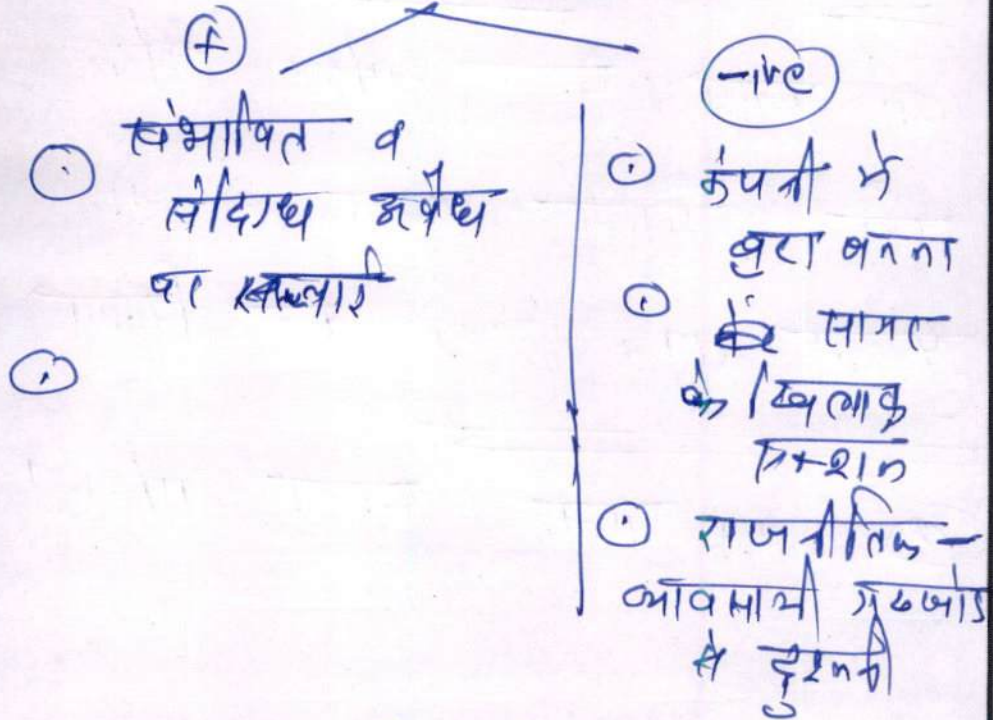 (+)
संभावित व
संदिग्ध अवैध
पर
-ive
कंपनी में
बुरा बनना
सागर
के खिलाफ
राजनीतिक -
व्यावसायी गठजोड़
से दुश्मनी